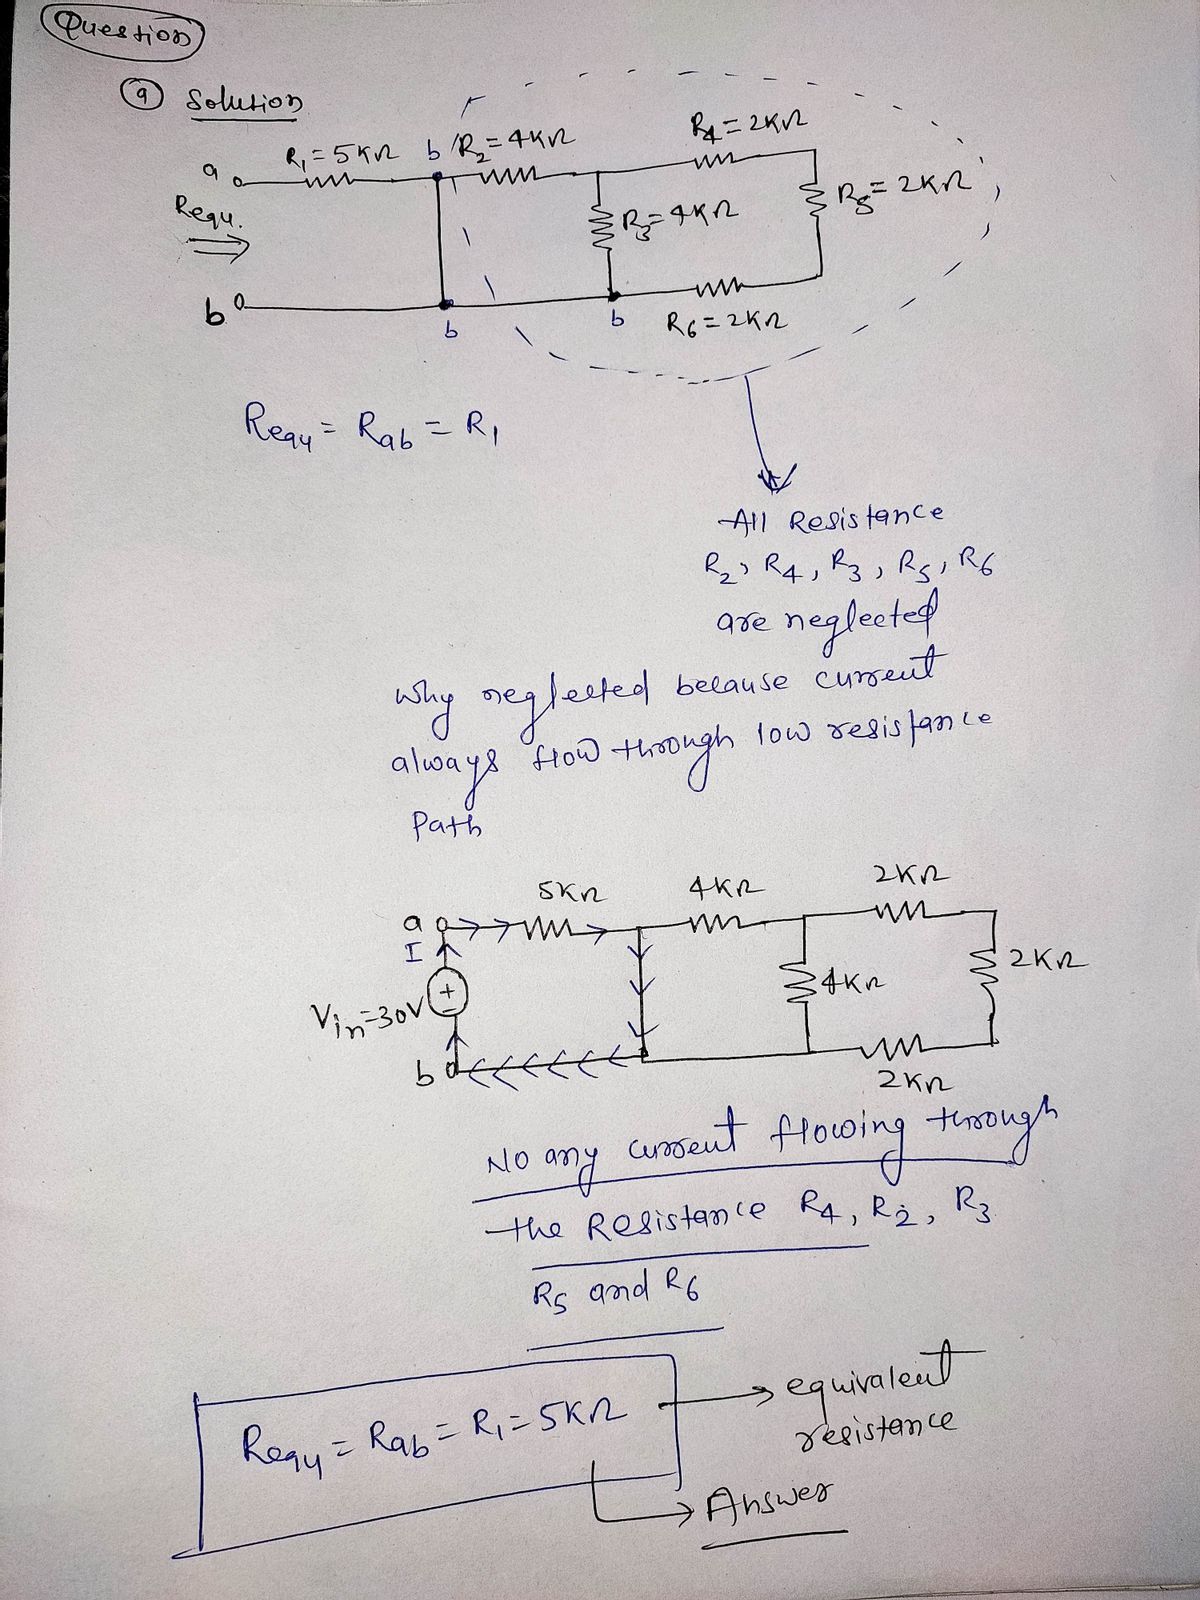 Question
a Solution
R1 = 5KΩ b R2 = 4KΩ R4 = 2KΩ
a
Requ. R3 = 4KΩ R5 = 2KΩ
b b b R6 = 2KΩ
Requ = Rab = R1
All Resistance
R2, R4, R3, R5, R6
are neglected
Why neglected because current
always flow through low resistance
Path
5KΩ 4KΩ 2KΩ
a
I
Vin=30V + - 4KΩ 2KΩ
b 2KΩ
No any current flowing through
the Resistance R4, R2, R3
R5 and R6
Requ = Rab = R1 = 5KΩ
equivalent
resistance
Answer